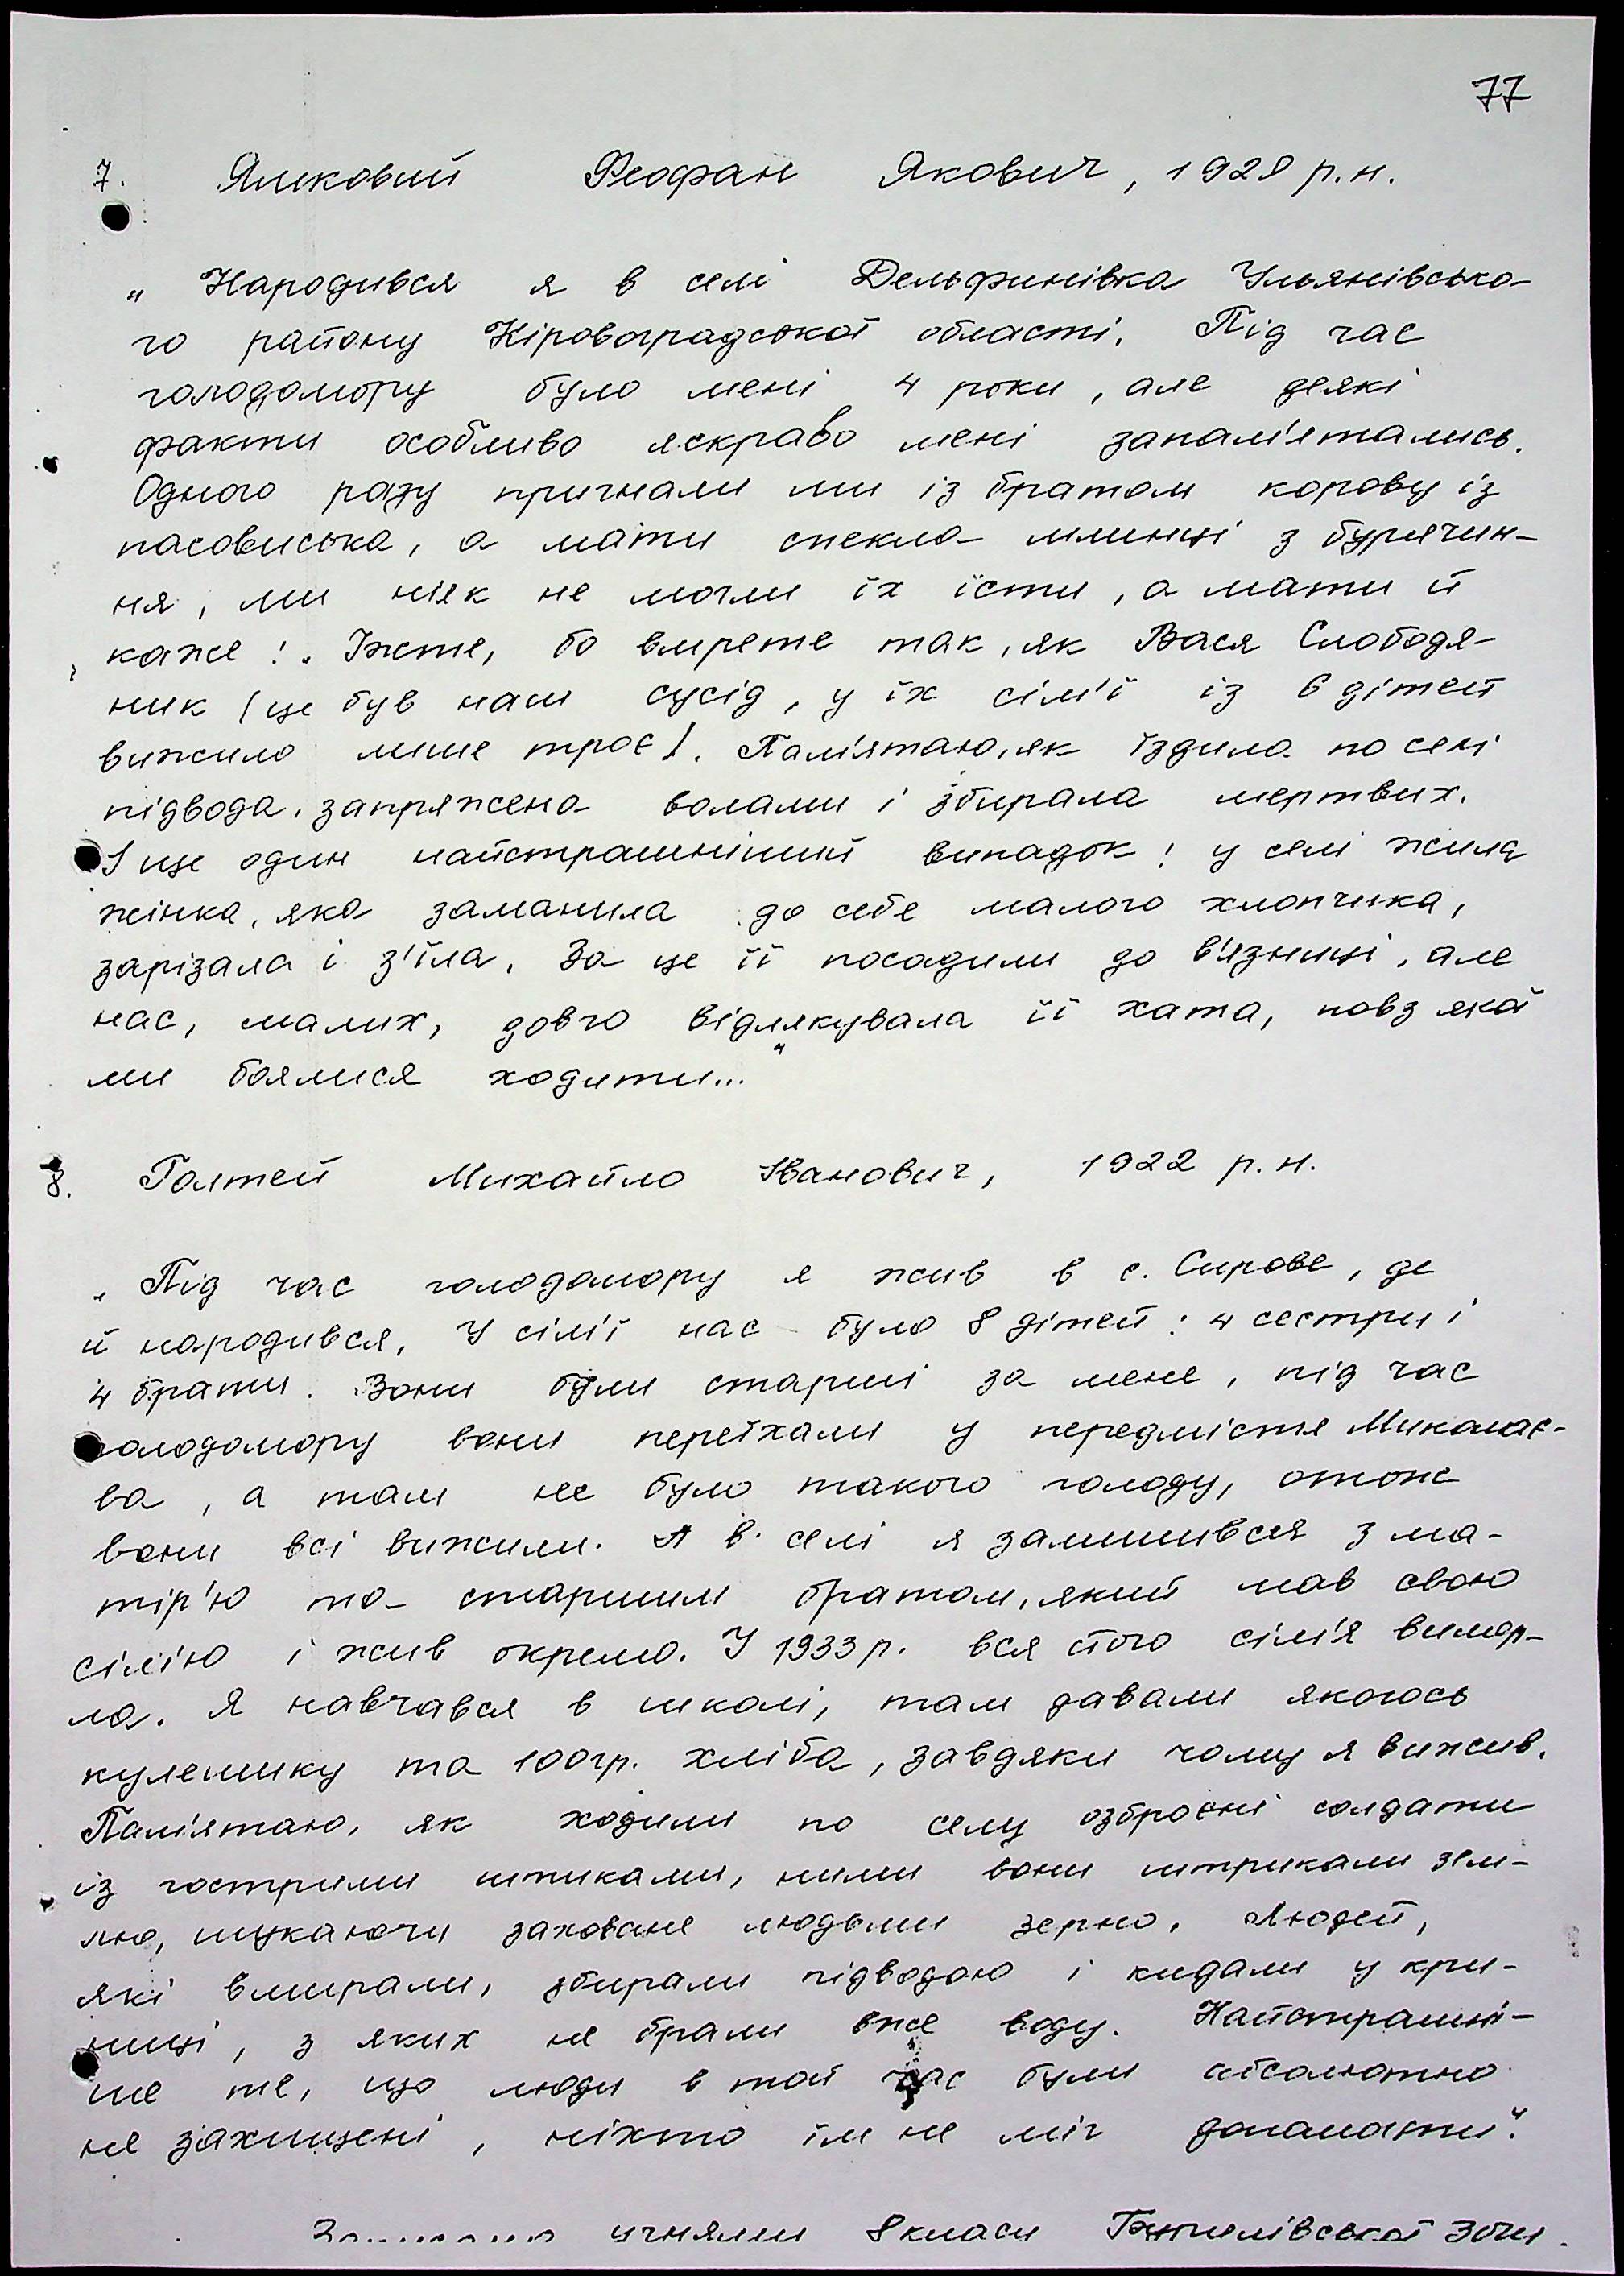 77
7. Ямковий Феофан Якович, 1928 р.н.
„ Народився я в селі Дельфинівка Ульянівсько-
го району Кіровоградської області. Під час
голодомору було мені 4 роки, але деякі
факти особливо яскраво мені запам'ятались.
Одного разу пригнали ми із братом корову із
пасовиська, а мати спекла млинці з бурячин-
ня, ми ніяк не могли їх їсти, а мати й
каже: „ Їжте, бо вмрете так, як Вася Слободя-
ник (це був наш сусід, у їх сім'ї із 6 дітей
вижило лише троє). Пам'ятаю, як їздила по селі
підвода, запряжена волами і збирала мертвих.
І ще один найстрашніший випадок: у селі жила
жінка, яка заманила до себе малого хлопчика,
зарізала і з'їла. За це її посадили до в'язниці, але
нас, малих, довго відлякувала її хата, повз якої
ми боялися ходити..."
8. Голтей Михайло Іванович, 1922 р.н.
„ Під час голодомору я жив в с. Сирове, де
й народився. У сім'ї нас було 8 дітей: 4 сестри і
4 брати. Вони були старші за мене, під час
голодомору вони переїхали у передмістя Миколає-
ва, а там не було такого голоду, отож
вони всі вижили. А в селі я залишився з ма-
тір'ю та старшим братом, який мав свою
сім'ю і жив окремо. У 1933 р. вся його сім'я вимер-
ла. Я навчався в школі, там давали якогось
кулешику та 100гр. хліба, завдяки чому я вижив.
Пам'ятаю, як ходили по селу озброєні солдати
із гострими штиками, ними вони штрикали зем-
лю, шукаючи заховане людьми зерно. Людей,
які вмирали, збирали підводою і кидали у кри-
ниці, з яких не брали вже воду. Найстрашні-
ше те, що люди в той час були абсолютно
не захищені, ніхто їм не міг допомогти."
учнями 8 класу ЗОШ.